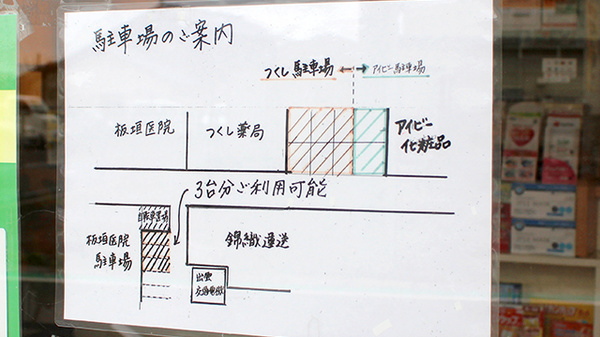 駐車場のご案内
つくし駐車場
アイビー駐車場
板垣医院
つくし薬局
アイビー
化粧品
3台分ご利用可能
自転車置場
板垣医院
駐車場
錦織運送
出雲